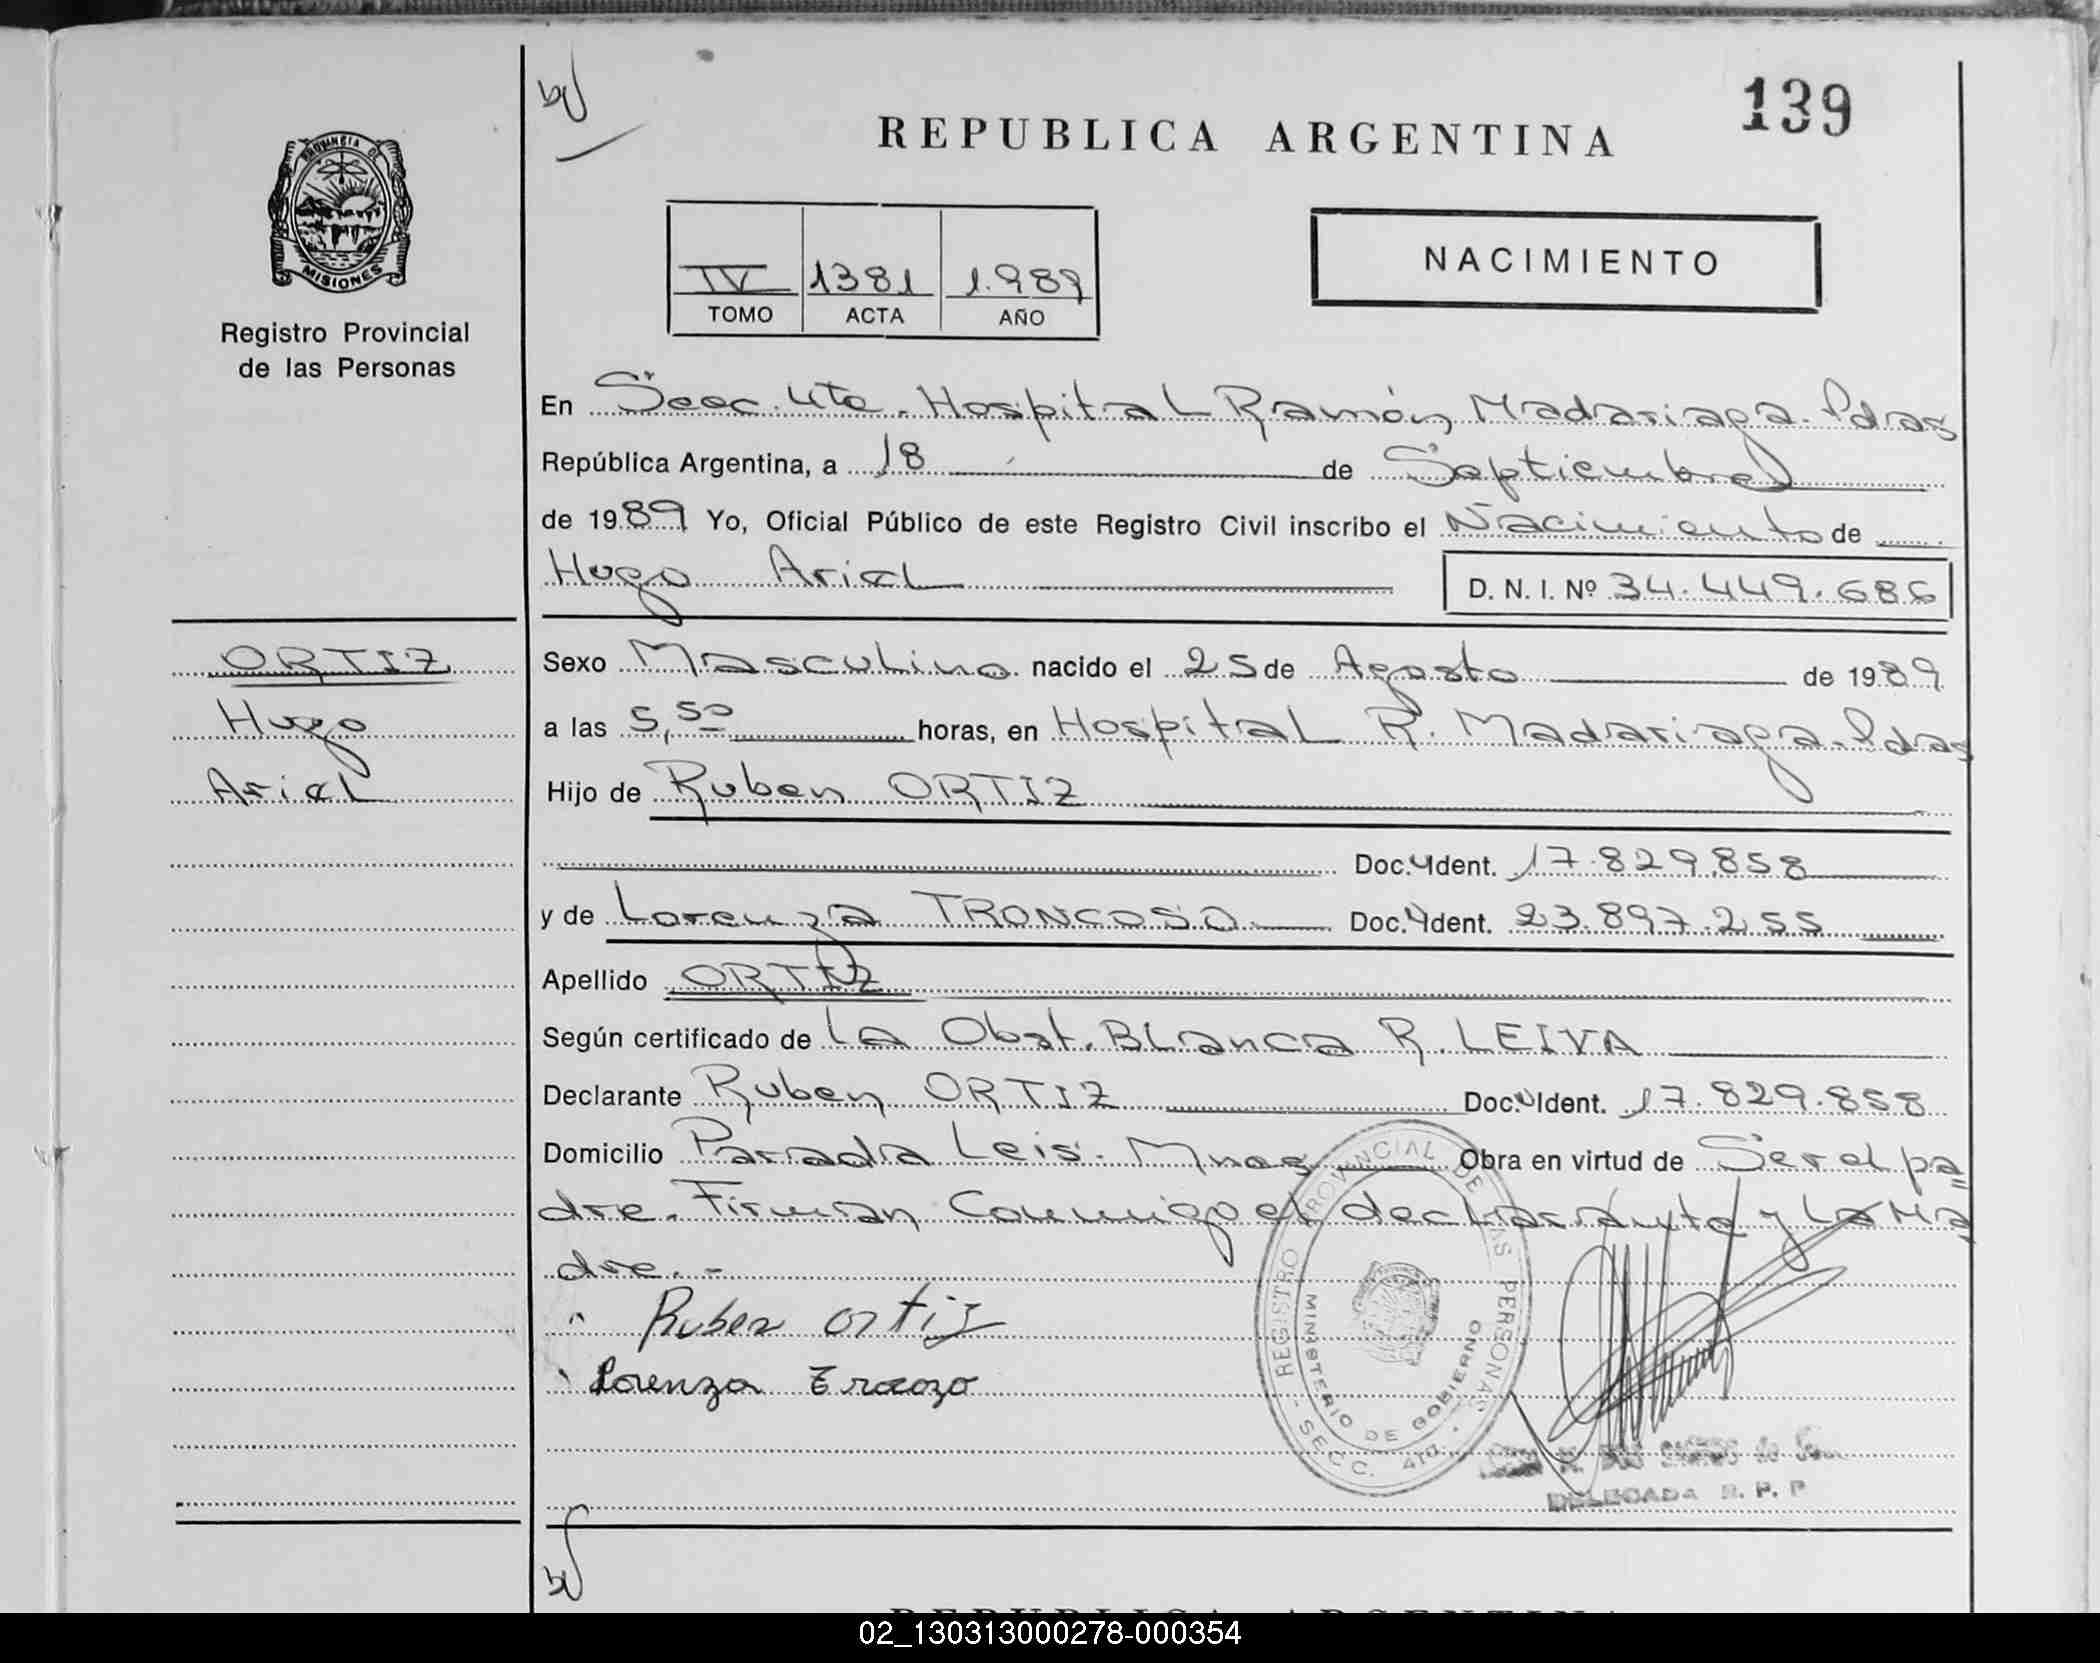 139
REPUBLICA ARGENTINA
PROVINCIA DE
MISIONES
Registro Provincial
de las Personas
IV 1381 1.989
TOMO ACTA AÑO
NACIMIENTO
En Secc. 4ta. Hospital Ramón Madariaga. Pdas
República Argentina, a 18 de Septiembre
de 1989 Yo, Oficial Público de este Registro Civil inscribo el Nacimiento de
Hugo Ariel D. N. I. Nº 34.449.686
ORTIZ
Hugo
Ariel
Sexo Masculino nacido el 25 de Agosto de 1989
a las 5,50 horas, en Hospital R. Madariaga. Pdas
Hijo de Ruben ORTIZ
Doc. Ident. 17.829.858
y de Lorenza TRONCOSO Doc. Ident. 23.897.255
Apellido ORTIZ
Según certificado de La Obst. Blanca R. LEIVA
Declarante Ruben ORTIZ Doc. Ident. 17.829.858
Domicilio Parada Leis. Mnes Obra en virtud de Ser el pa=
dre. Firman Conmigo el declarante y La Ma
dre.-
Ruben Ortiz
Lorenza
REGISTRO PROVINCIAL DE LAS PERSONAS
MINISTERIO DE GOBIERNO
- SECC. 4ta. -
DELEGADA R. P. P
REPUBLICA ARGENTINA
02_130313000278-000354